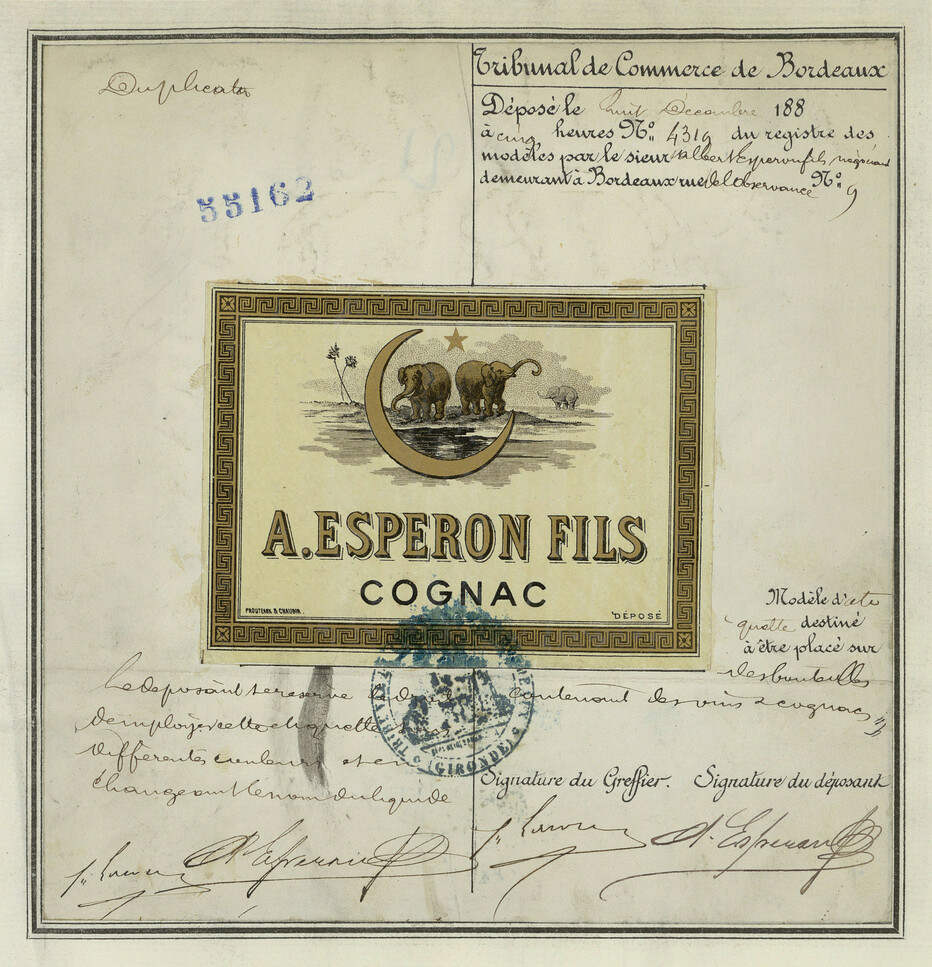 Duplicata
55162
Tribunal de Commerce de Bordeaux
Déposé le huit Décembre 188
à cinq heures N° 4319 du registre des
modèles par le sieur Albert Esperon fils négociant
demeurant à Bordeaux rue de l'Observance N° 9
A. ESPERON FILS
COGNAC
PROUTEAUX & CHAUVIN.
DÉPOSÉ
Modèle d'éti
quette destiné
à être placé sur
des bouteilles
contenant des vins & cognacs
Le déposant se réserve le
d'employer cette étiquette
différentes couleurs et en
changeant le nom du liquide
(GIRONDE)
Signature du Greffier. Signature du déposant
A. Esperon
A. Esperon